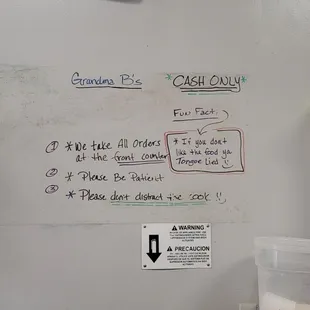 Grandma B's
*CASH ONLY*
FUN Fact.
* If you don't
like the food ya
Tongue Lied
① *We take All Orders
at the front counter
② * Please Be Patient
③
* Please don't distract the cook
WARNING
PRECAUCION